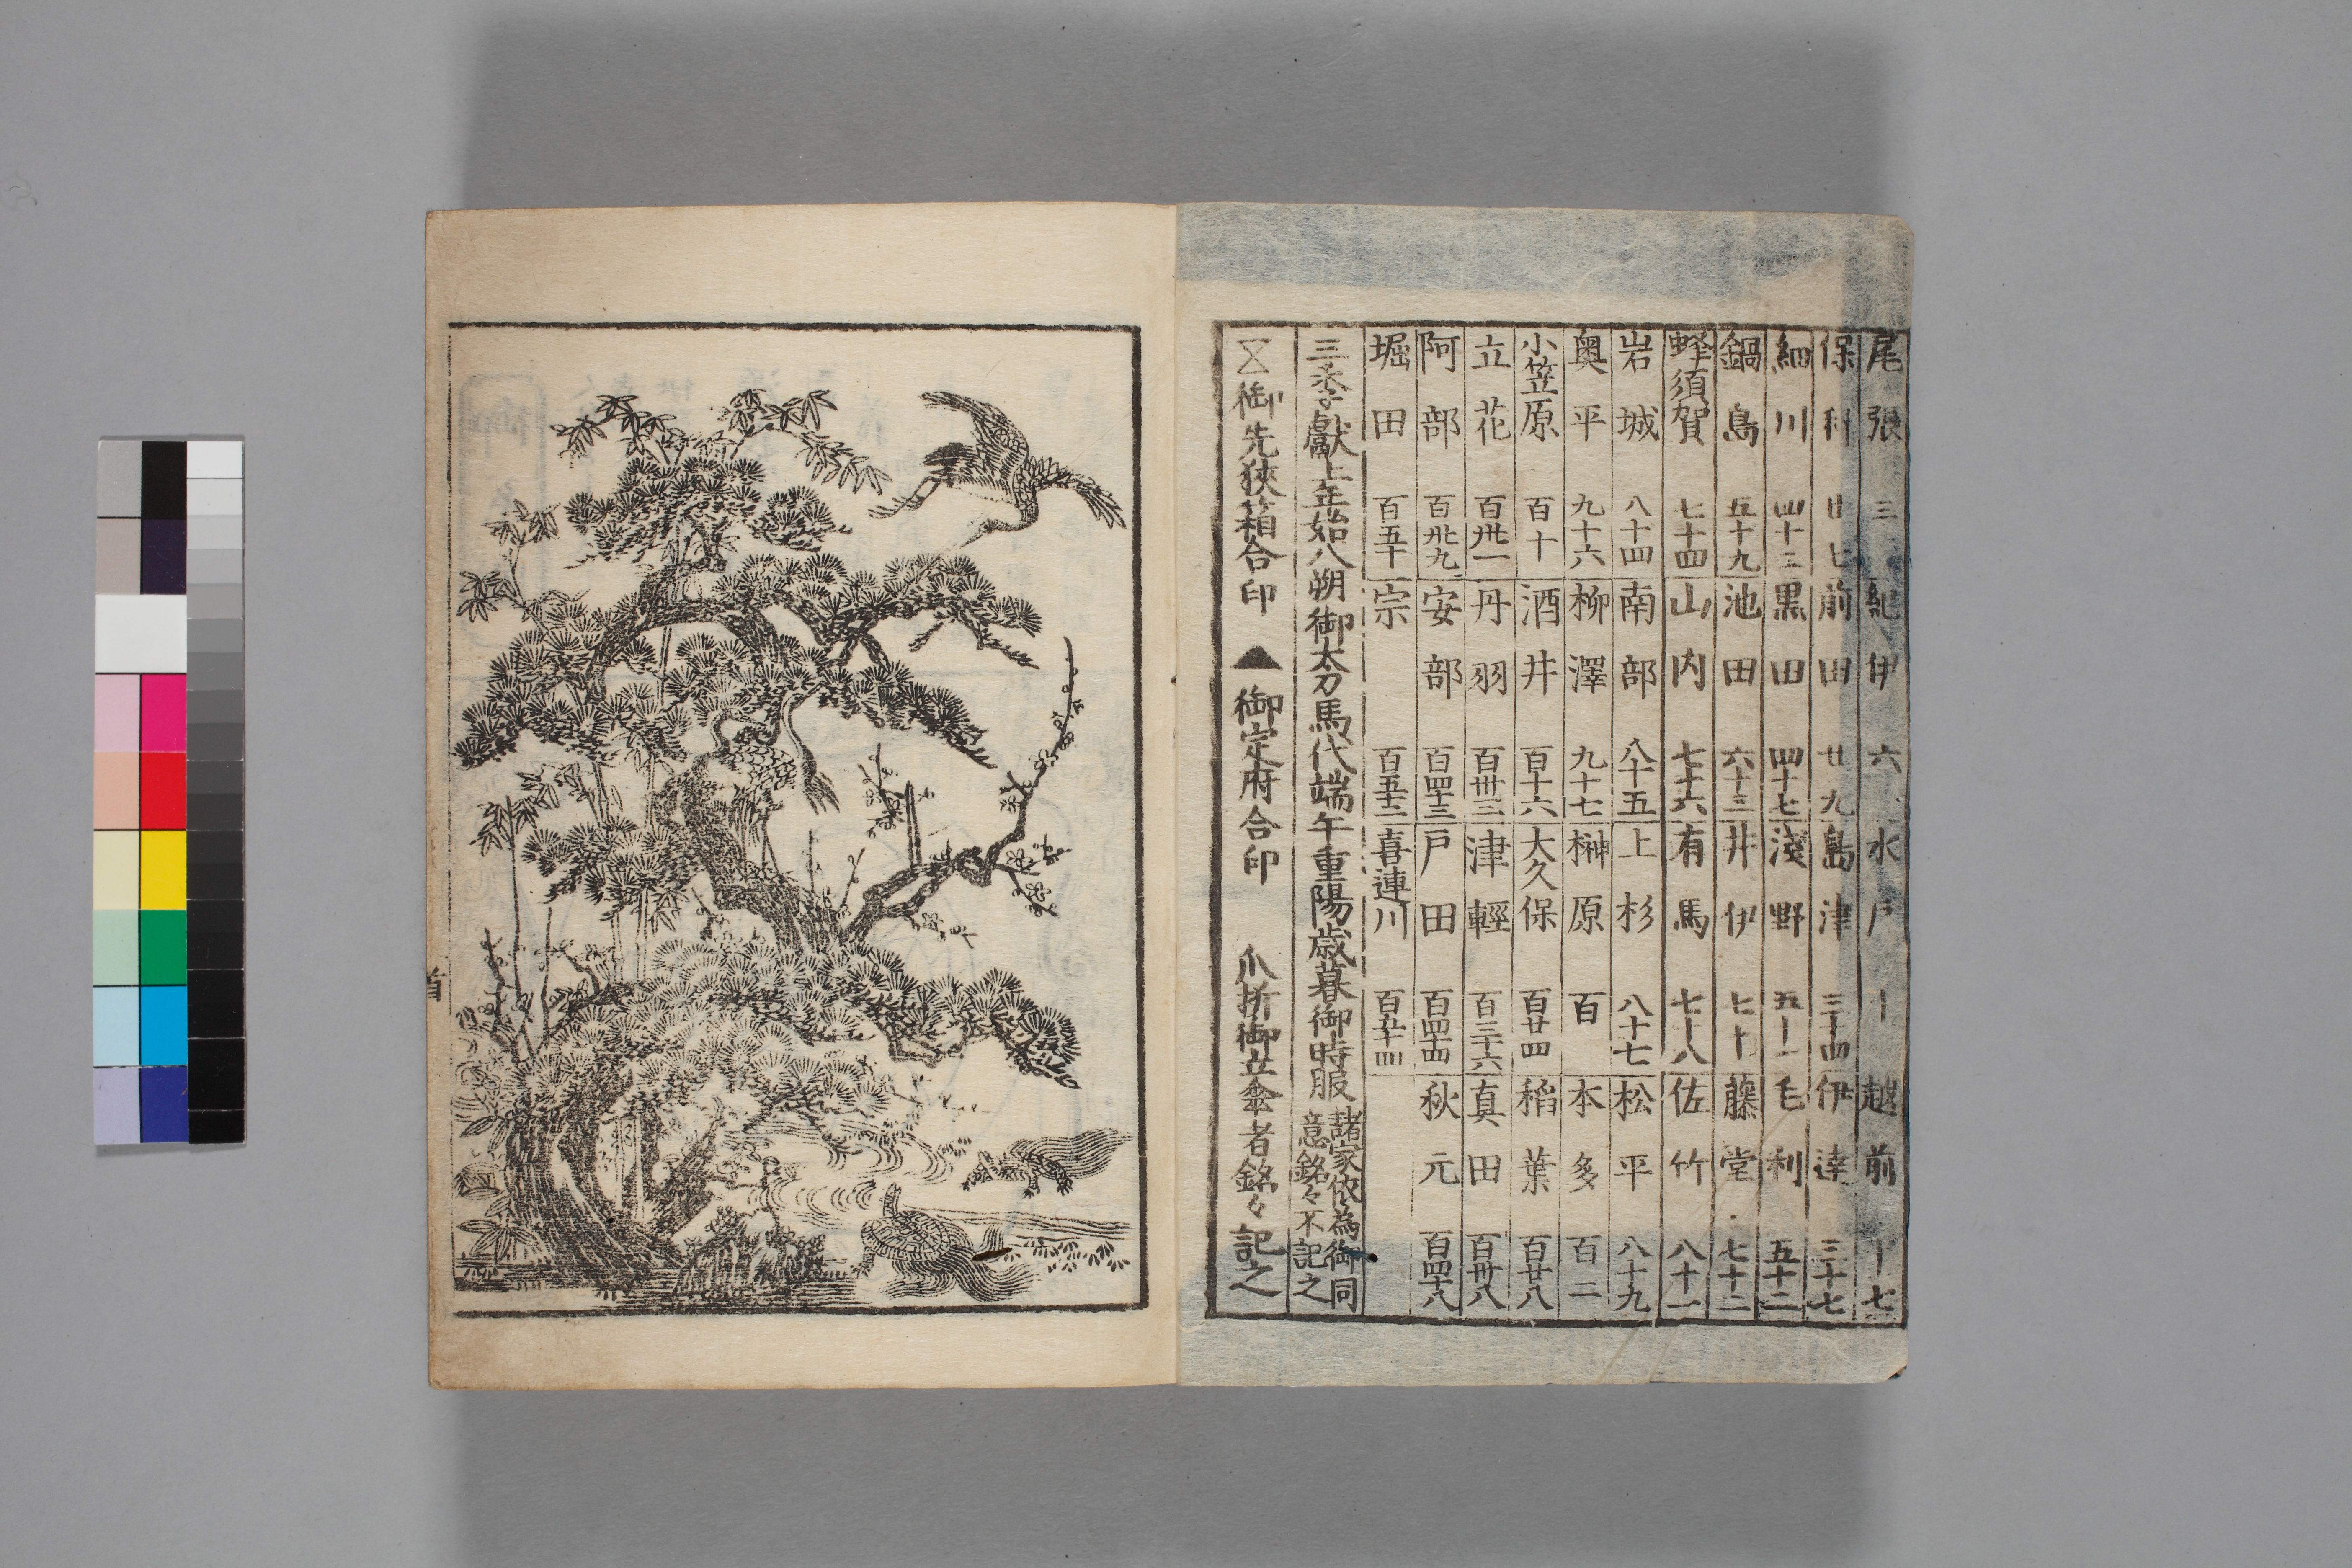 尾張 三 紀伊 六 水戸 十 越前 十七
保科 廿七 前田 廿九 島津 三十四 伊達 三十七
細川 四十三 黒田 四十七 淺野 五十一 毛利 五十二
鍋島 五十九 池田 六十三 井伊 七十 藤堂 七十二
蜂須賀 七十四 山内 七十六 有馬 七十八 佐竹 八十一
岩城 八十四 南部 八十五 上杉 八十七 松平 八十九
奥平 九十六 柳澤 九十七 榊原 百 本多 百二
小笠原 百十 酒井 百十六 大久保 百廿四 稲葉 百廿八
立花 百卅一 丹羽 百卅三 津輕 百三十六 真田 百卅八
阿部 百卅九 安部 百四十三 戸田 百四十四 秋元 百四十八
堀田 百五十 宗 百五十二 喜連川 百五十四
三季献上年始八朔御太刀馬代端午重陽歳暮御時服 諸家依為御同意銘々不記之
御先狹箱合印 ▲御定府合印 爪折御立傘者銘々記之
首